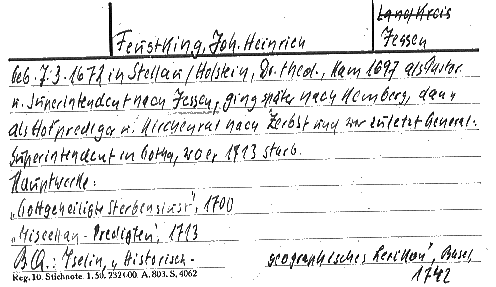 Landkreis
Feustking, Joh. Heinrich
Jessen
geb. 7.3.1672 in Stellau/Holstein, Dr. theol., kam 1697 als Pastor
u. Superintendent nach Jessen, ging später nach Kemberg, dann
als Hofprediger u. Kirchenrat nach Zerbst und war zuletzt General-
Superintendent in Gotha, wo er 1713 starb.
Hauptwerke:
„Gottgeheiligte Sterbenslust", 1700
„Miscellan-Predigten", 1713
B.Q.: Iselin, „Historisch-geographisches Lexikon", Basel
1742
Reg. 10. Stichnote 1. 50. 232100. A. 803. S. 4062